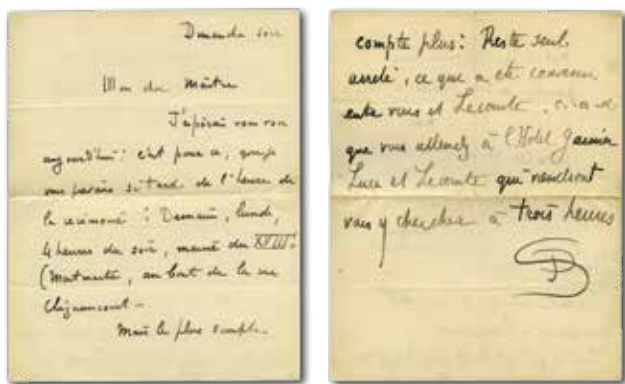 Dimanche soir
Mon cher Maître
J'espérais vous voir
aujourd'hui : c'est pour ça, que je
vous parais si tard de l'heure de
la cérémonie : Demain, lundi,
4 heures du soir, mairie du XVIII:
(Montmartre, au bout de la rue
Clignancourt -
Mais le plus simple
compte plus : Reste seul
arrêté, ce que a été convenu
entre vous et Lecomte. c'est-à-d
que vous attendez à l'Hotel Garnier
Luce et Lecomte qui viendront
vous y chercher à trois heures